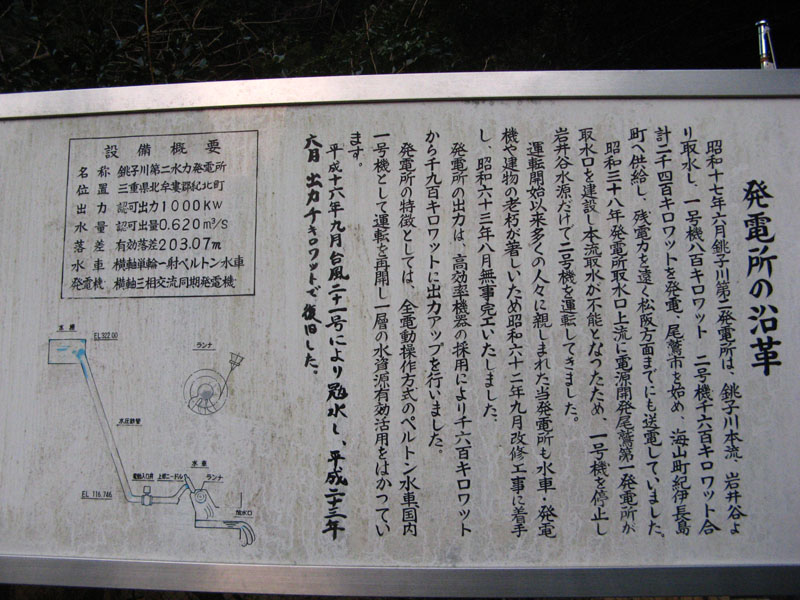 発電所の沿革
昭和十七年六月銚子川第二発電所は、銚子川本流、岩井谷よ
り取水し、一号機八百キロワット 二号機千六百キロワット合
計二千四百キロワットを発電、尾鷲市を始め、海山町紀伊長島
町へ供給し、残電力を遠く松阪方面までにも送電していました。
昭和三十八年発電所取水口上流に電源開発尾鷲第一発電所が
取水口を建設し本流取水が不能となったため、一号機を停止し
岩井谷水源だけで二号機を運転してきました。
運転開始以来多くの人々に親しまれた当発電所も水車・発電
機や建物の老朽が著しいため昭和六十二年九月改修工事に着手
し、昭和六十三年八月無事完工いたしました、
発電所の出力は、高効率機器の採用により千六百キロワット
から千九百キロワットに出力アップを行いました。
発電所の特徴としては、全電動操作方式のペルトン水車国内
一号機として運転を再開し一層の水資源有効活用をはかってい
ます。
平成十六年九月台風二十一号により冠水し、平成二十三年
六月 出力千キロワットで復旧した。
設備概要
名称 銚子川第二水力発電所
位置 三重県北牟婁郡紀北町
出力 認可出力1000KW
水量 認可出量0.620m³/S
落差 有効落差203.07m
水車 横軸単輪一射ペルトン水車
発電機 横軸三相交流同期発電機
水槽
EL322.00
ランナ
水圧鉄管
水車
ランナ
電動入口弁
上部ニードル
EL 116.746
放水口